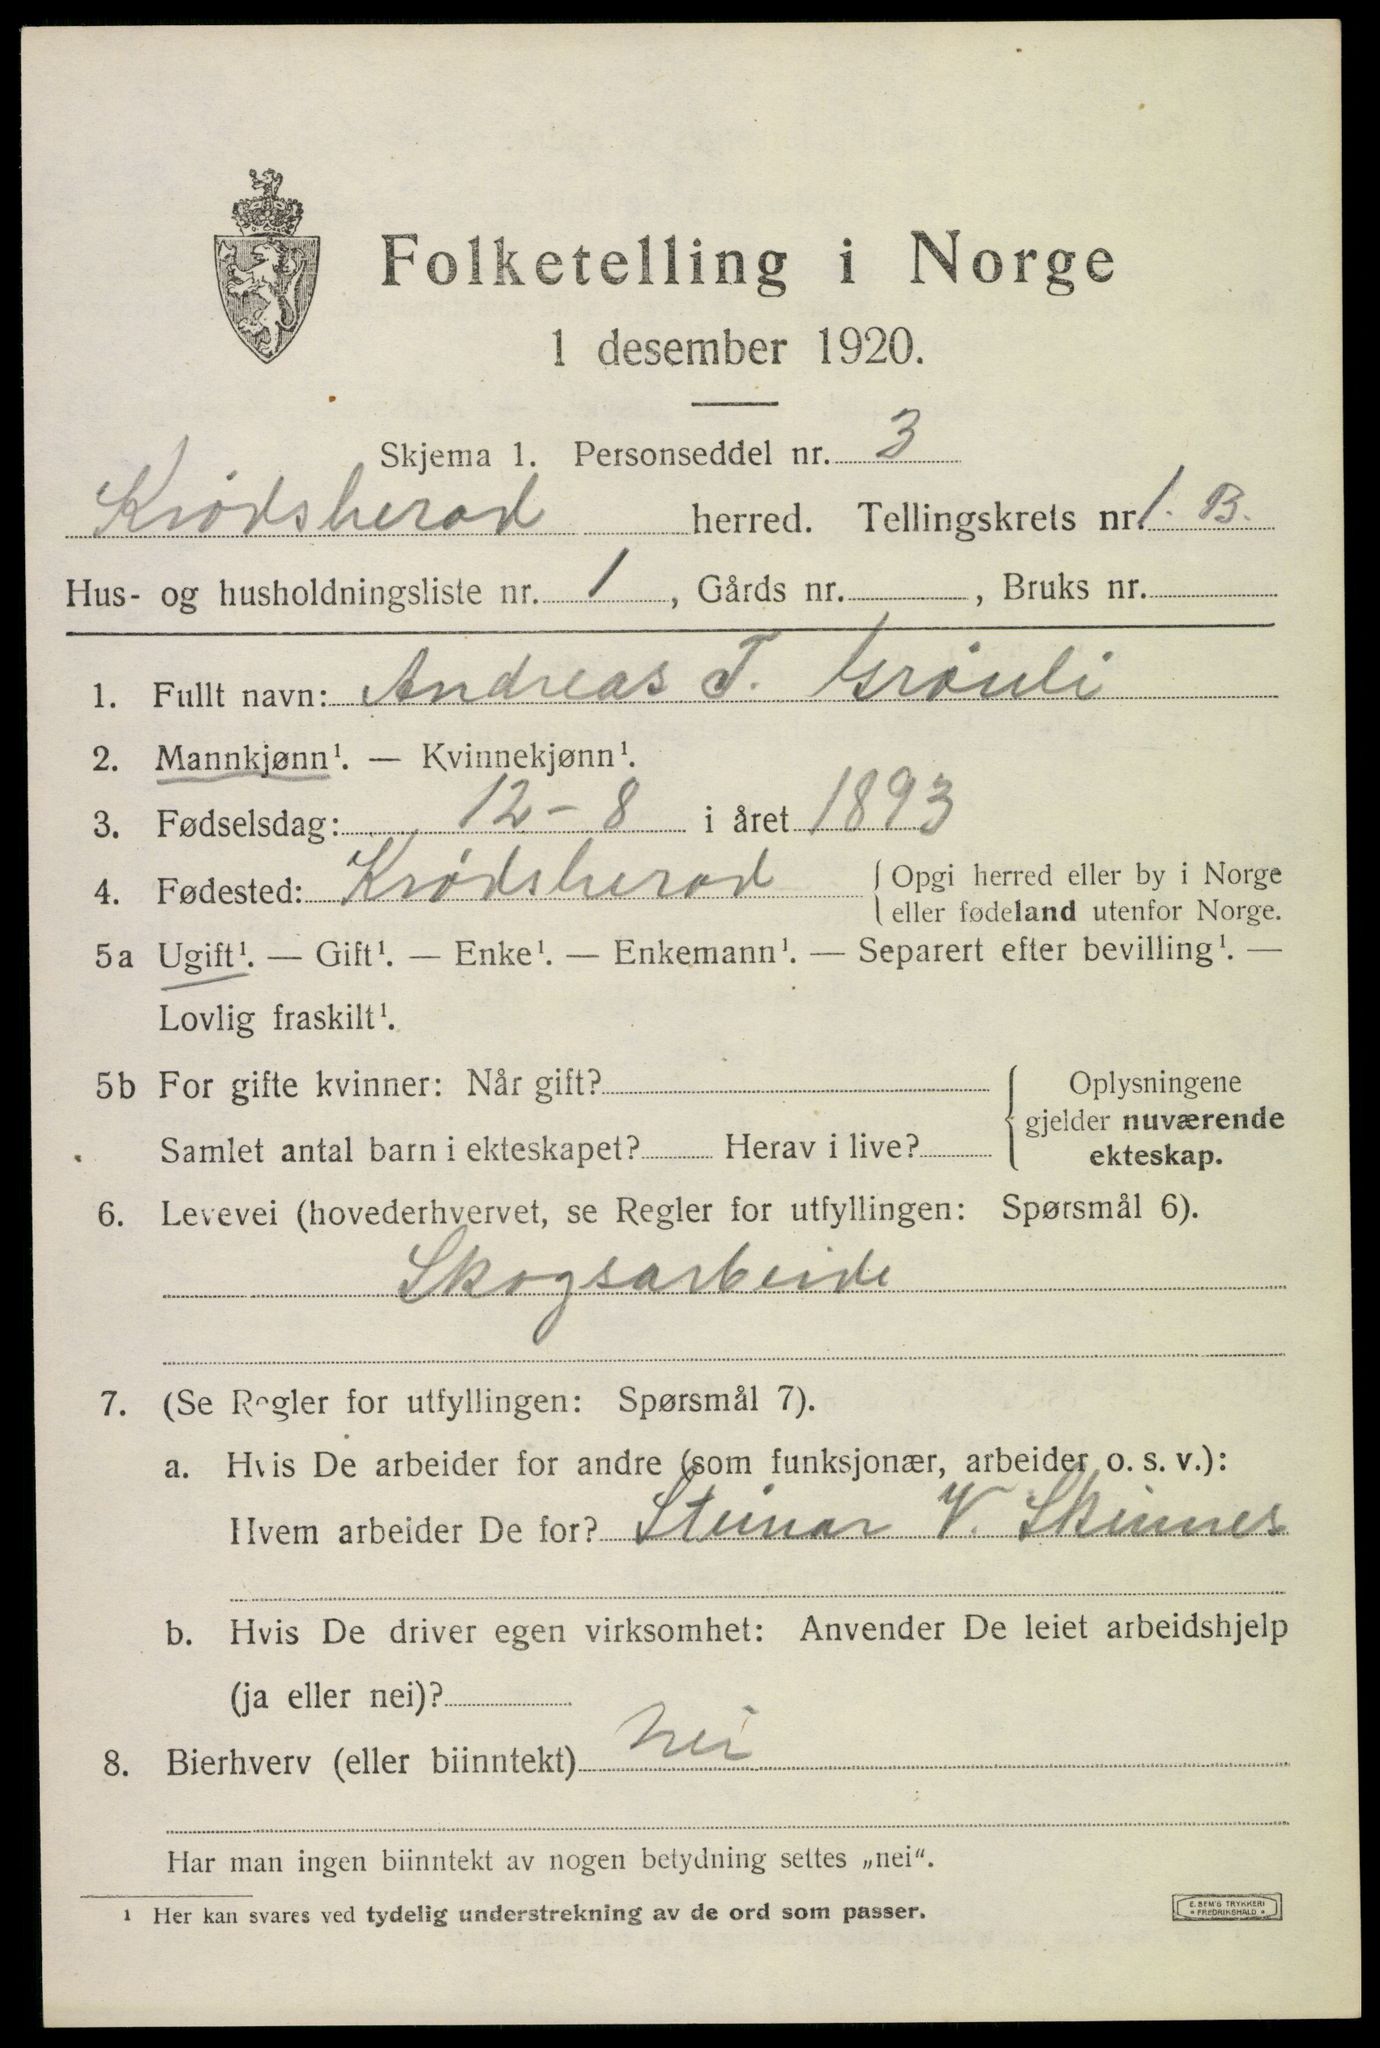 Folketelling i Norge
1 desember 1920.
Skjema 1. Personseddel nr. 3
Krødsherad herred. Tellingskrets nr. 1. B.
Hus- og husholdningsliste nr. 1, Gårds nr. , Bruks nr.
1. Fullt navn: Andreas T. Grøuli
2. Mannkjønn¹. — Kvinnekjønn¹.
3. Fødselsdag: 12-8 i året 1893
4. Fødested: Krødsherad { Opgi herred eller by i Norge
eller fødeland utenfor Norge.
5a Ugift¹. — Gift¹. — Enke¹. — Enkemann¹. — Separert efter bevilling¹. —
Lovlig fraskilt¹.
5b For gifte kvinner: Når gift?
Samlet antal barn i ekteskapet? Herav i live?
{ Oplysningene
gjelder nuværende
ekteskap.
6. Levevei (hovederhvervet, se Regler for utfyllingen: Spørsmål 6).
Skogsarbeide
7. (Se Regler for utfyllingen: Spørsmål 7).
a. Hvis De arbeider for andre (som funksjonær, arbeider o. s. v.):
Hvem arbeider De for? Steinar V. Skinnes
b. Hvis De driver egen virksomhet: Anvender De leiet arbeidshjelp
(ja eller nei)?
8. Bierhverv (eller biinntekt) Nei
Har man ingen biinntekt av nogen betydning settes „nei“.
¹ Her kan svares ved tydelig understrekning av de ord som passer.
E. SEM'S TRYKKERI
FREDRIKSHALD